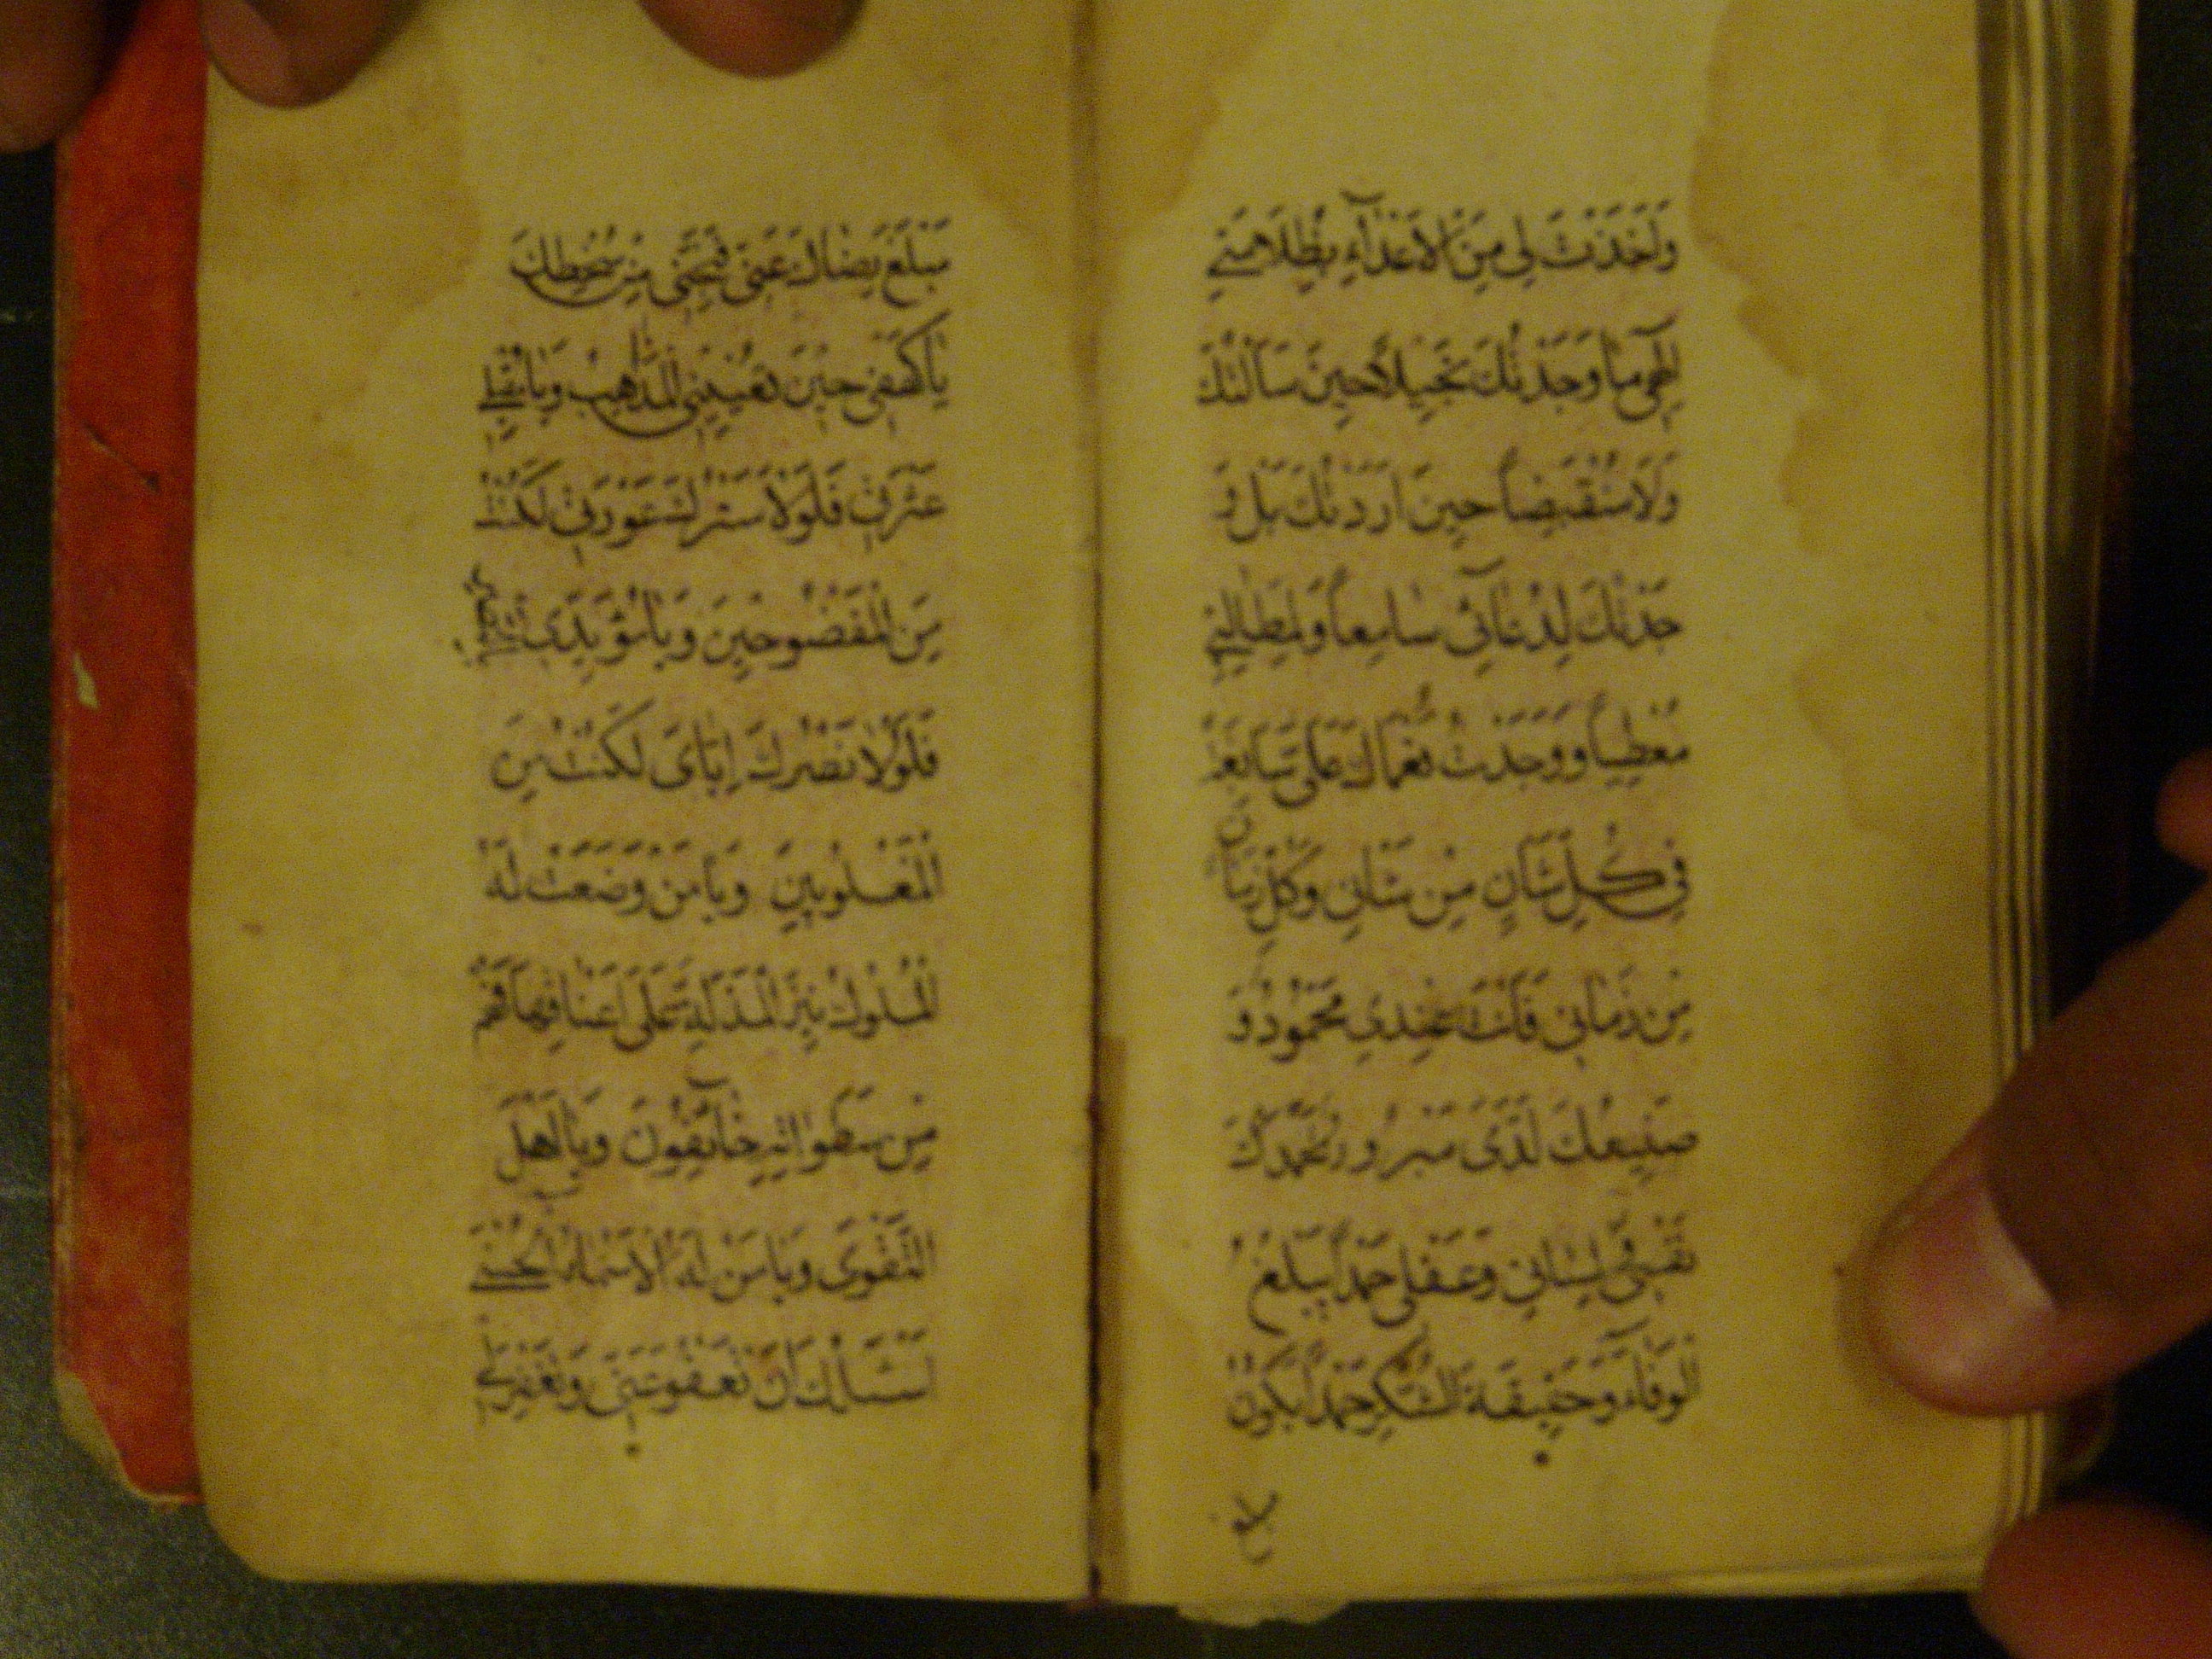 وَأَخَذْتَ لِي مِنَ الْأَعْدَاءِ بِظُلَامَتِي
إِلٰهِي مَا وَجَدْتُكَ بَخِيلًا حِينَ سَأَلْتُكَ
وَلَا مُنْقَبِضًا حِينَ أَرَدْتُكَ بَلْ وَ
جَدْتُكَ لِدُعَائِي سَامِعًا وَلِمَطَالِبِي
مُعْطِيًا وَوَجَدْتُ نُعْمَاكَ عَلَيَّ سَابِغَةً
فِي كُلِّ شَأْنٍ مِنْ شَأْنِي وَكُلِّ زَمَانٍ
مِنْ زَمَانِي فَأَنْتَ عِنْدِي مَحْمُودٌ وَ
صَنِيعُكَ لَدَيَّ مَبْرُورٌ تَحْمَدُكَ
نَفْسِي وَلِسَانِي وَعَقْلِي حَمْدًا يَبْلُغُ
الْوَفَاءَ وَحَقِيقَةَ الشُّكْرِ حَمْدًا يَكُونُ
مَبْلَغَ رِضَاكَ عَنِّي فَنَجِّنِي مِنْ سُخْطِكَ
يَا كَهْفِي حِينَ تُعْيِينِي الْمَذَاهِبُ وَيَا مُقِيلِي
عَثْرَتِي فَلَوْلَا سَتْرُكَ عَوْرَتِي لَكُنْتُ
مِنَ الْمَفْضُوحِينَ وَيَا مُؤَيِّدِي بِالنَّصْرِ
فَلَوْلَا نَصْرُكَ إِيَّايَ لَكُنْتُ مِنَ
الْمَغْلُوبِينَ وَيَا مَنْ وَضَعَتْ لَهُ
الْمُلُوكُ نِيرَ الْمَذَلَّةِ عَلَى أَعْنَاقِهَا فَهُمْ
مِنْ سَطَوَاتِهِ خَائِفُونَ وَيَا أَهْلَ
التَّقْوَى وَيَا مَنْ لَهُ الْأَسْمَاءُ الْحُسْنَى
أَسْئَلُكَ أَنْ تَعْفُوَ عَنِّي وَتَغْفِرَ لِي